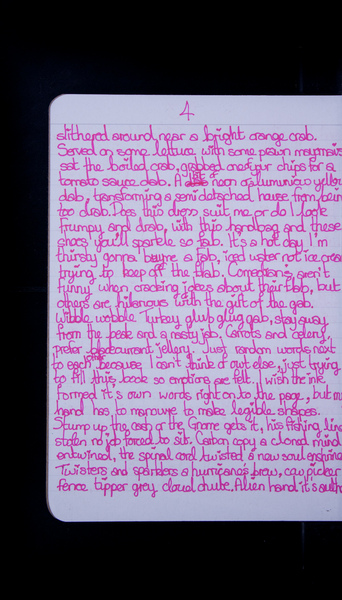 4
slithered around near a bright orange crab.
Served on some lettuce with some prawn mayonnaise
sat the boiled crab, grabbed one of your chips for a
tomato sauce dab. A bit of neon or luminous yellow
dab, transforming a semi detached house from being
too drab. Does this dress suit me or do I look
frumpy and drab, with this handbag and these
shoes you'll sparkle so fab. It's a hot day I'm
thirsty gonna buy me a fab, iced water not ice cream
trying to keep off the flab. Comedians aren't
funny when cracking jokes about their flab, but
others are hilarious with the gift of the gab.
Wibble wobble Turkey glub glug gab, stay away
from the beak and a nasty jab, Carrots and celery
prefer blackcurrant jellery. Just random words next
to each other because I can't think of owt else, just trying
to fill this book so emotions are felt. I wish the ink
formed it's own words right on to the page, but my
hand has to manouvre to make legible shapes.
Stump up the cash or the Gnome gets it, his fishing line
stolen no job forced to sit. Carbon copy a cloned mind
entwined, the spinal cord twisted a new soul enshrined
Twisters and sparklers a hurricane's brew, cow picker
fence tipper grey cloud chute. Alien hand it's